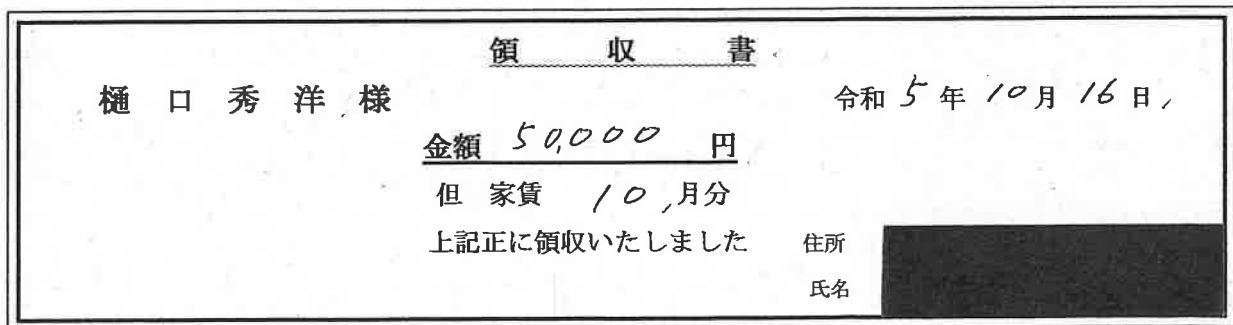 領 収 書
樋 口 秀 洋 様
令和 5 年 10 月 16 日
金額 50,000 円
但 家賃 10 月分
上記正に領収いたしました
住所
氏名